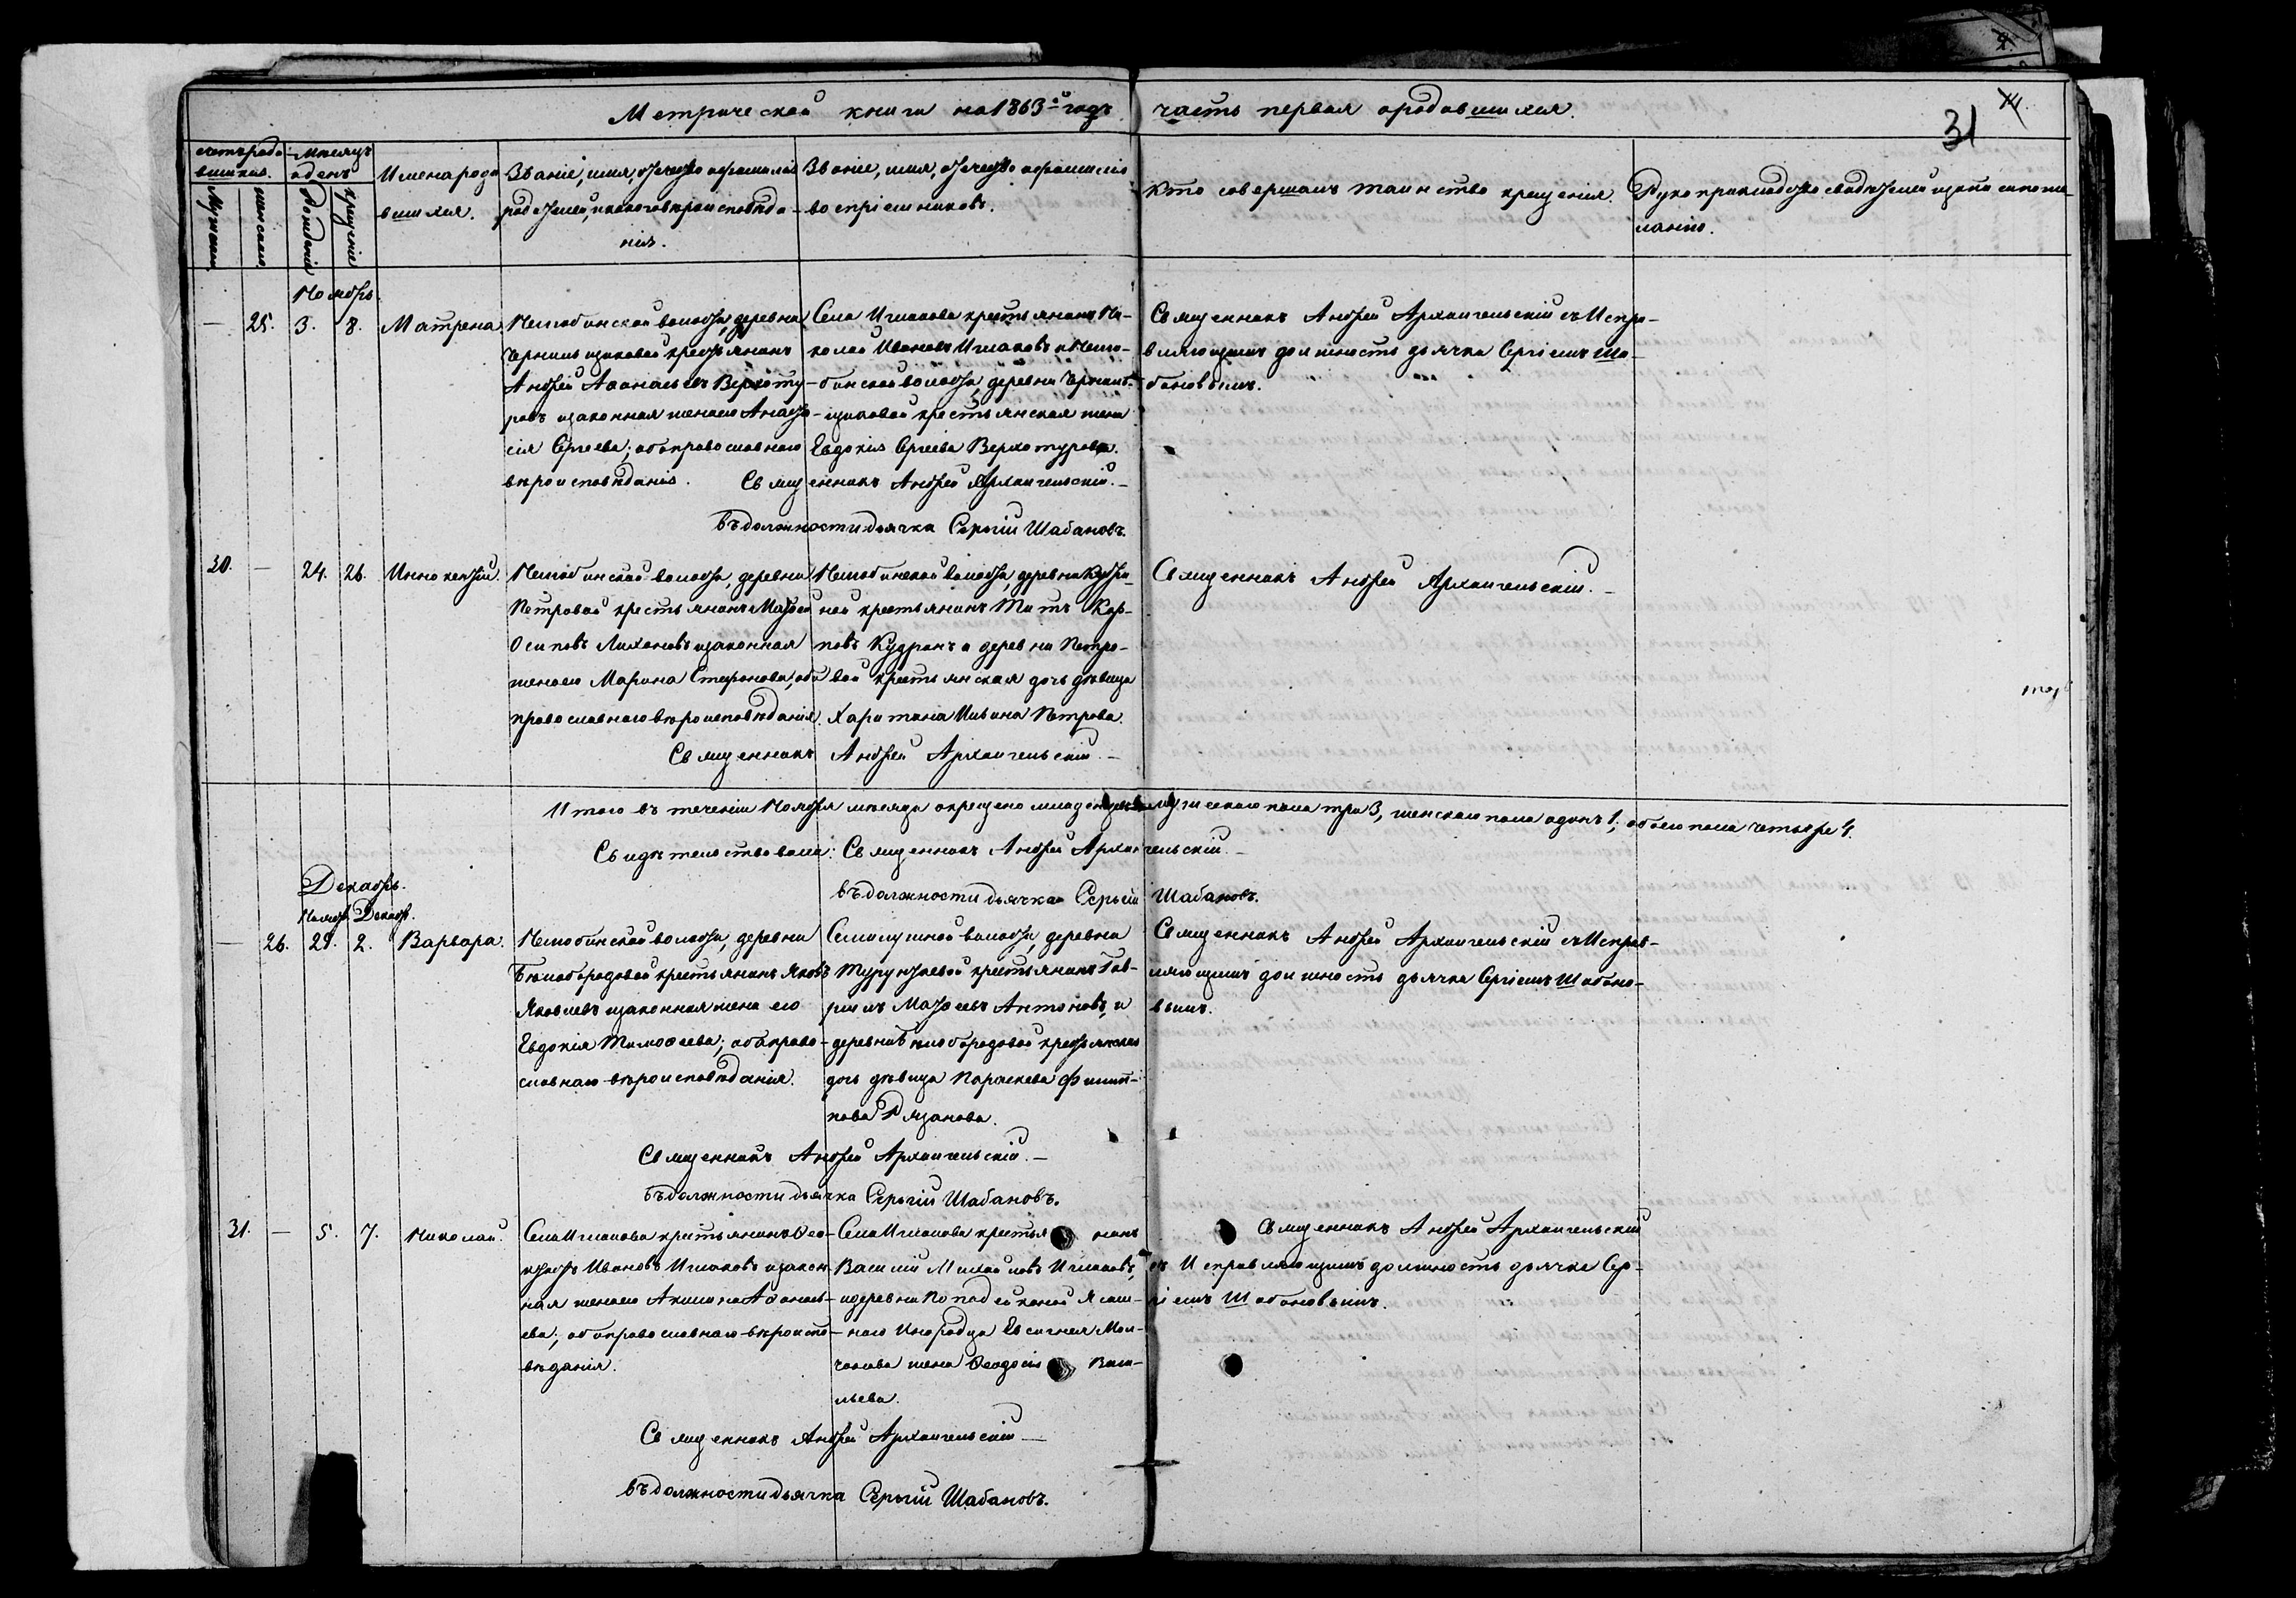 Метрической книги на 1863й годъ часть первая о родившихся.
31
Счетъ родившихся.
Мѣсяцъ и день
Имена родившихся.
Званіе, имя, отчество и фамилія
родителей, и какого вѣроисповѣда-
нія.
Званіе, имя, отчество и фамилія
воспріемниковъ.
Кто совершалъ таинство крещенія.
Рукоприкладство свидѣтелей записи по же-
ланію.
Мужеска
женскаго
Рожденія
Крещеніе
Ноябрь.
— 25. 3. 8. Матрена
волости, деревни
крестьянинъ
Андрей Аѳанасьевъ Верхоту-
ровъ и законная жена его Анаста-
сія Сергеева; оба православнаго
вѣроисповѣданія.
Села Иглакова крестьянинъ Ни-
колай Ивановъ Иглаковъ и
волости, деревни
крестьянская жена
Евдокія Сергеева Верхотурова.
Священникъ Андрей Архангельскій съ Испра-
вляющимъ должность дьячка Сергіемъ Ша-
бановымъ.
Священникъ Андрей Архангельскій.—
Въ должности дьячка Сергѣй Шабановъ.
30. — 24. 26. Иннокентій.
волости, деревни
Петровой крестьянинъ Матѳей
Осиповъ Лихановъ и законная
жена его Марина Стефанова, оба
православнаго вѣроисповѣданія.
волости, деревни Кудри-
ной крестьянинъ Титъ Кар-
повъ Кудринъ и деревни Петро-
вой крестьянская дочь дѣвица
Харитина Ильина Петрова.
Священникъ Андрей Архангельскій.—
Священникъ Андрей Архангельскій.—
Итого въ теченіи Ноября мѣсяца окрещено младенцевъ мужескаго пола три 3, женскаго пола одинъ 1; обоего пола четыре 4.
Свидѣтельствовали: Священникъ Андрей Архангельскій.—
въ должности дьячка Сергѣй Шабановъ.
Декабрь.
Ноябр. Декабр.
— 26. 29. 2. Варвара.
волости, деревни
Бѣлобородовой крестьянинъ Яковъ
Яковлевъ и законная жена его
Евдокія Тимоѳеева; оба право-
славнаго вѣроисповѣданія.
Семилужной волости, деревни
Турунтаевой крестьянинъ Гав-
риилъ Матѳеевъ Антоновъ, и
деревни Бѣлобородовой крестьянская
дочь дѣвица Параскева Филип-
пова Рязанова.
Священникъ Андрей Архангельскій съ Исправ-
ляющимъ должность дьячка Сергіемъ Шабано-
вымъ.
Священникъ Андрей Архангельскій.—
въ должности дьячка Сергѣй Шабановъ.
31. — 5. 7. Николай.
Села Иглакова крестьянинъ Ѳео-
ктистъ Ивановъ Иглаковъ и закон-
ная жена его Акилина Аѳанась-
ева; оба православнаго вѣроиспо-
вѣданія.
Села Иглакова крестьянинъ
Василій Михайловъ Иглаковъ,
и деревни
наго Инородца Евсигнея Мол-
чанова жена Ѳеодосія Васи-
льева.
Священникъ Андрей Архангельскій
съ Исправляющимъ должность дьячка Сер-
гіемъ Шабановымъ.
Священникъ Андрей Архангельскій —
въ должности дьячка Сергѣй Шабановъ.